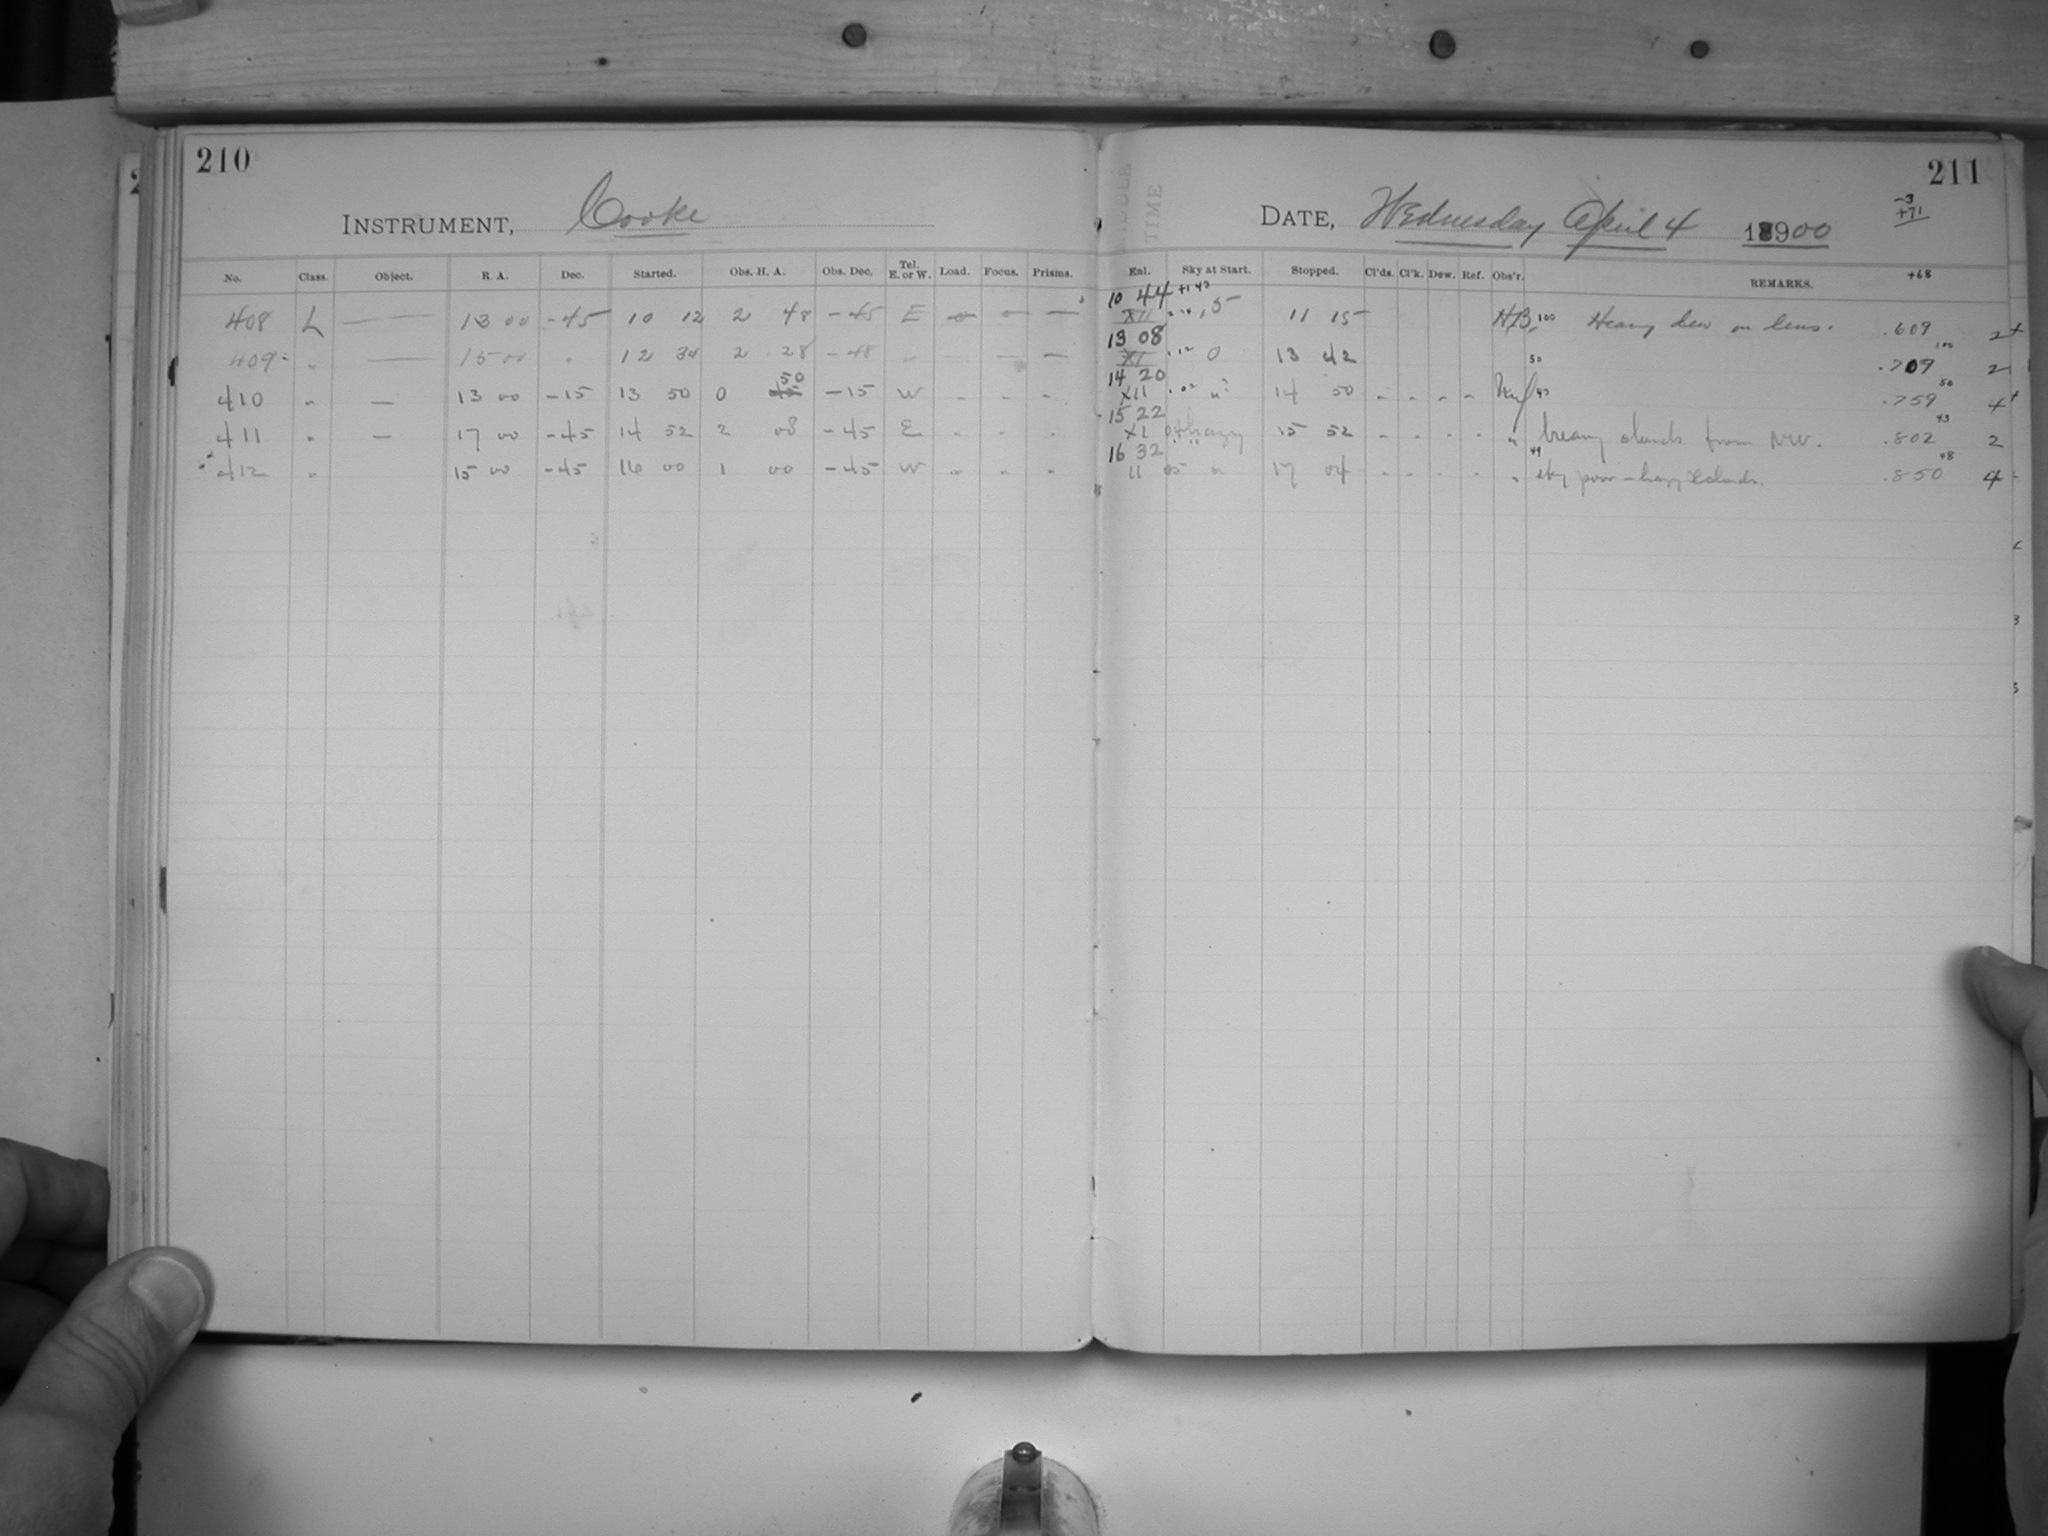 210
INSTRUMENT, Cooke
No. Class. Object. R. A. Dec. Started. Obs. H. A. Obs. Dec. Tel. E. or W. Load. Focus. Prisms.
408 L — 13 00 -45 10 12 2 48 -45 E — — —
409 " — 15 00 " 12 34 2 28 -48 " — —
50
410 " — 13 00 -15 13 50 0 -15 W - - -
411 " — 17 00 -45 14 52 2 08 -45 E - - -
412 " 15 00 -45 16 00 1 00 -45 W " " "
211
MIDDLE TIME
DATE, Wednesday April 4 1900
-3
+71
+68
Enl. Sky at Start. Stopped. Cl'ds. Cl'k. Dew. Ref. Obs'r. REMARKS.
10 44 +1 43
XII 5 11 15 HB 100 Heavy dew on lens. .609 2+
13 08 100
XI 0 13 42 50 .709 2
14 20 50
XII 14 50 - - - - 43 .759 4+
15 22 43
XI hazy 15 52 - - - - " heavy clouds from NW. .802 2
16 32 49 48
11 05 " 17 04 - - - - " sky poor – hazy & clouds. .850 4-